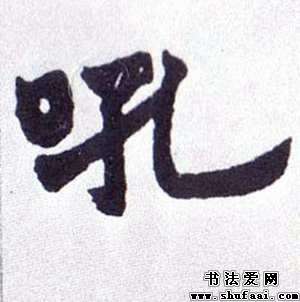 吼
书法爱网
www.shufaai.com